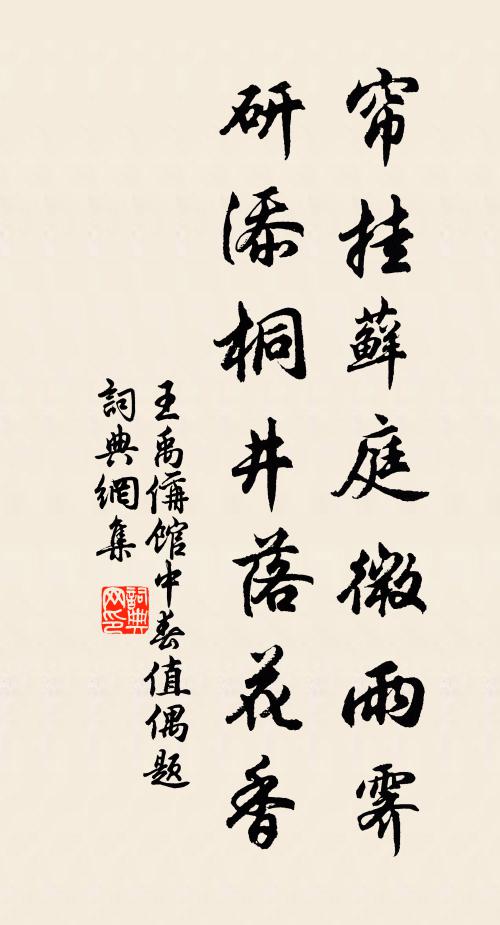 帘挂藓庭微雨霽
研添桐井落花香
王禹偁馆中春值偶题
詞典網集
詞典网印